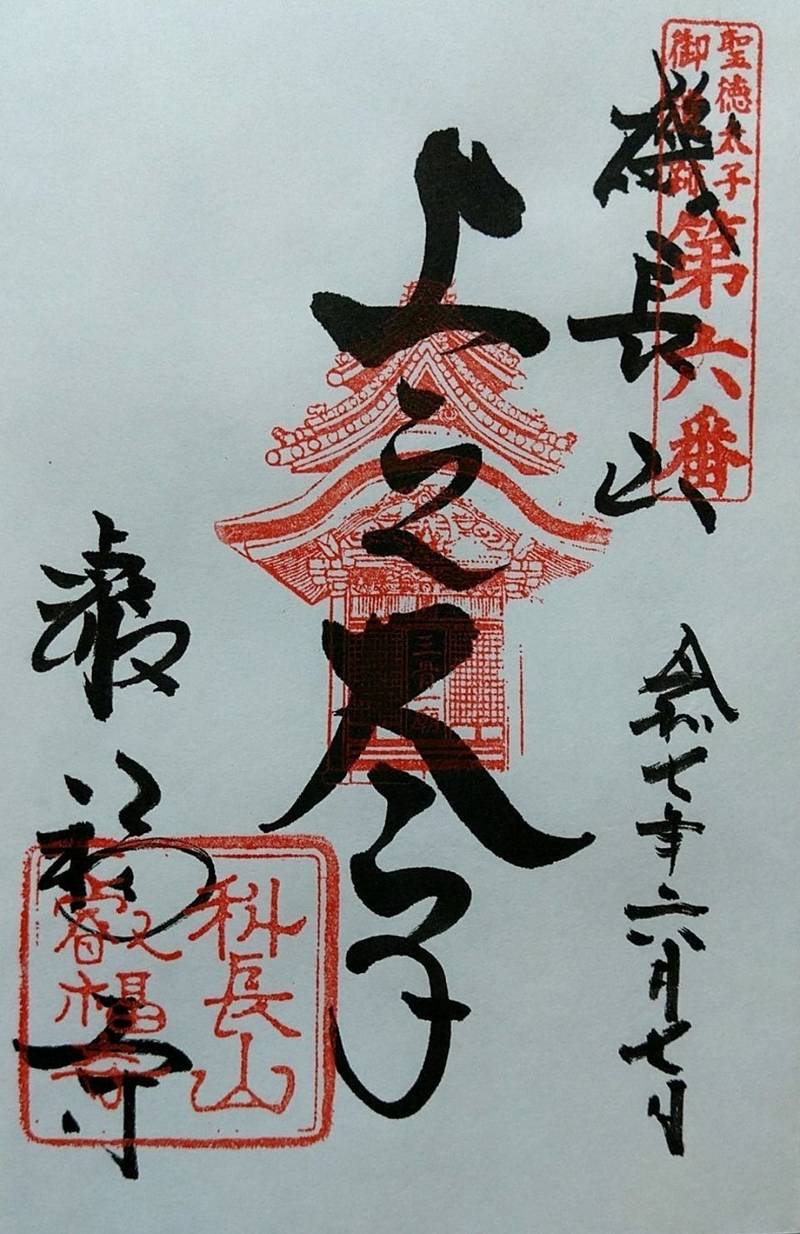 聖徳太子
御遺跡
第六番
磯長山
令和七年六月七日
上之太子
叡福寺
科長山
叡福寺